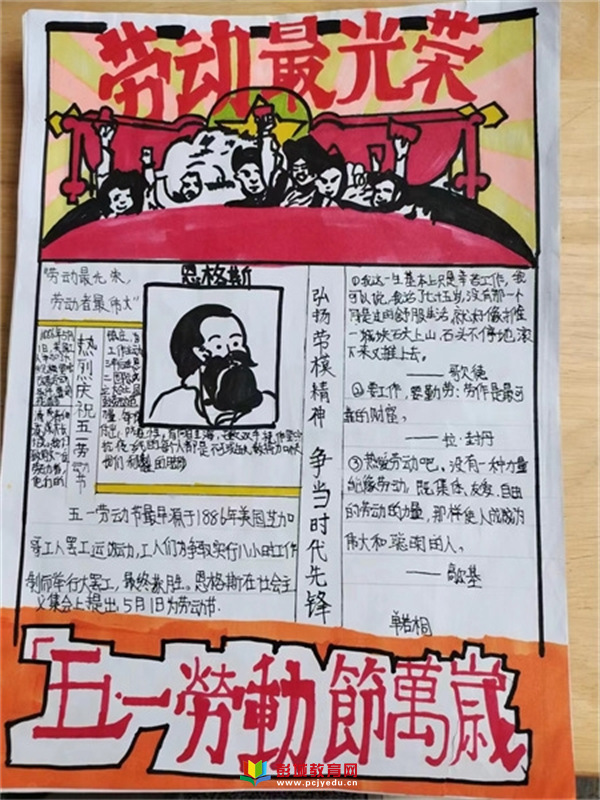 劳动最光荣
"劳动最光荣,
劳动者最伟大"
恩格斯
热烈庆祝五一劳动节
五一劳动节最早源于1886年美国芝加
哥工人罢工运动,工人们为争取实行八小时工作
制而举行大罢工,最终获胜。恩格斯在社会主
义集会上提出,5月1日为劳动节.
弘扬劳模精神 争当时代先锋
①我这一生基本上只是辛苦工作,我
可以说,我活了七十五岁,没有哪一个
月是过的舒服生活,就好像推
一块石头上山,石头不停地滚
下来又推上去。
——歌德
②要工作,要勤劳:劳作是最可
靠的财富。
——拉·封丹
③热爱劳动吧。没有一种力量
能像劳动,既集体、友爱、自由
的劳动的力量,那样使人成为
伟大和聪明的人。
——高尔基
单若桐
五·一勞動節萬歲
彭狮教育网
www.pcjyedu.cn